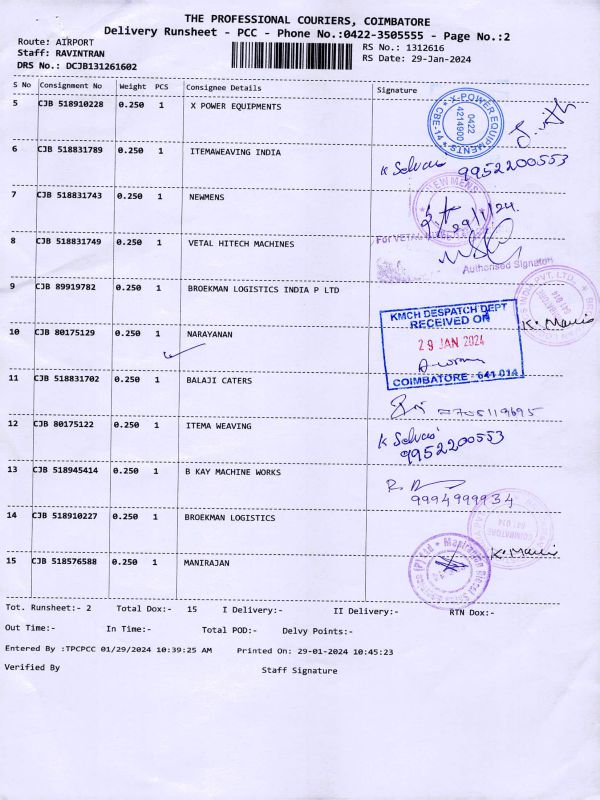 THE PROFESSIONAL COURIERS, COIMBATORE
Delivery Runsheet - PCC - Phone No.:0422-3505555 - Page No.:2
Route: AIRPORT
Staff: RAVINTRAN
DRS No.: DCJB131261602
RS No.: 1312616
RS Date: 29-Jan-2024
S No Consignment No Weight PCS Consignee Details Signature
5 CJB 518910228 0.250 1 X POWER EQUIPMENTS
X-POWER EQUIPMENTS
0422
4214900
CBE-14
6 CJB 518831789 0.250 1 ITEMAWEAVING INDIA
K Selvas 9952200553
7 CJB 518831743 0.250 1 NEWMENS
NEWMENS
29/1/24
8 CJB 518831749 0.250 1 VETAL HITECH MACHINES
For VETAL
Authorised Signatory
9 CJB 89919782 0.250 1 BROEKMAN LOGISTICS INDIA P LTD
PVT. LTD
K. Mani
10 CJB 80175129 0.250 1 NARAYANAN
KMCH DESPATCH DEPT
RECEIVED ON
29 JAN 2024
COIMBATORE - 641 014
11 CJB 518831702 0.250 1 BALAJI CATERS
12 CJB 80175122 0.250 1 ITEMA WEAVING
K Selvas
9952200553
13 CJB 518945414 0.250 1 B KAY MACHINE WORKS
9994999934
14 CJB 518910227 0.250 1 BROEKMAN LOGISTICS
COIMBATORE
641 034
K. Mani
15 CJB 518576588 0.250 1 MANIRAJAN
Tot. Runsheet:- 2 Total Dox:- 15 I Delivery:- II Delivery:- RTN Dox:-
Out Time:- In Time:- Total POD:- Delvy Points:-
Entered By :TPCPCC 01/29/2024 10:39:25 AM Printed On: 29-01-2024 10:45:23
Verified By Staff Signature